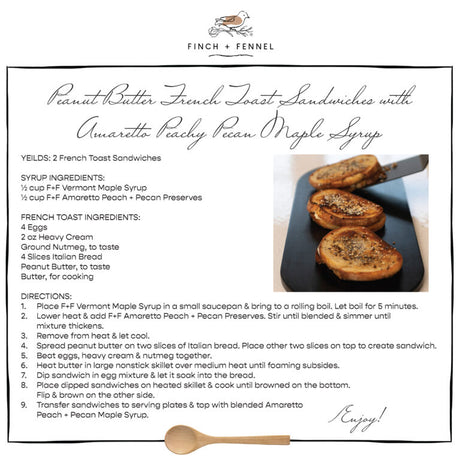 FINCH + FENNEL
Peanut Butter French Toast Sandwiches with
Amaretto Peachy Pecan Maple Syrup
YEILDS: 2 French Toast Sandwiches
SYRUP INGREDIENTS:
½ cup F+F Vermont Maple Syrup
½ cup F+F Amaretto Peach + Pecan Preserves
FRENCH TOAST INGREDIENTS:
4 Eggs
2 oz Heavy Cream
Ground Nutmeg, to taste
4 Slices Italian Bread
Peanut Butter, to taste
Butter, for cooking
DIRECTIONS:
1. Place F+F Vermont Maple Syrup in a small saucepan & bring to a rolling boil. Let boil for 5 minutes.
2. Lower heat & add F+F Amaretto Peach + Pecan Preserves. Stir until blended & simmer until
mixture thickens.
3. Remove from heat & let cool.
4. Spread peanut butter on two slices of Italian bread. Place other two slices on top to create sandwich.
5. Beat eggs, heavy cream & nutmeg together.
6. Heat butter in large nonstick skillet over medium heat until foaming subsides.
7. Dip sandwich in egg mixture & let it soak into the bread.
8. Place dipped sandwiches on heated skillet & cook until browned on the bottom.
Flip & brown on the other side.
9. Transfer sandwiches to serving plates & top with blended Amaretto
Peach + Pecan Maple Syrup.
Enjoy!